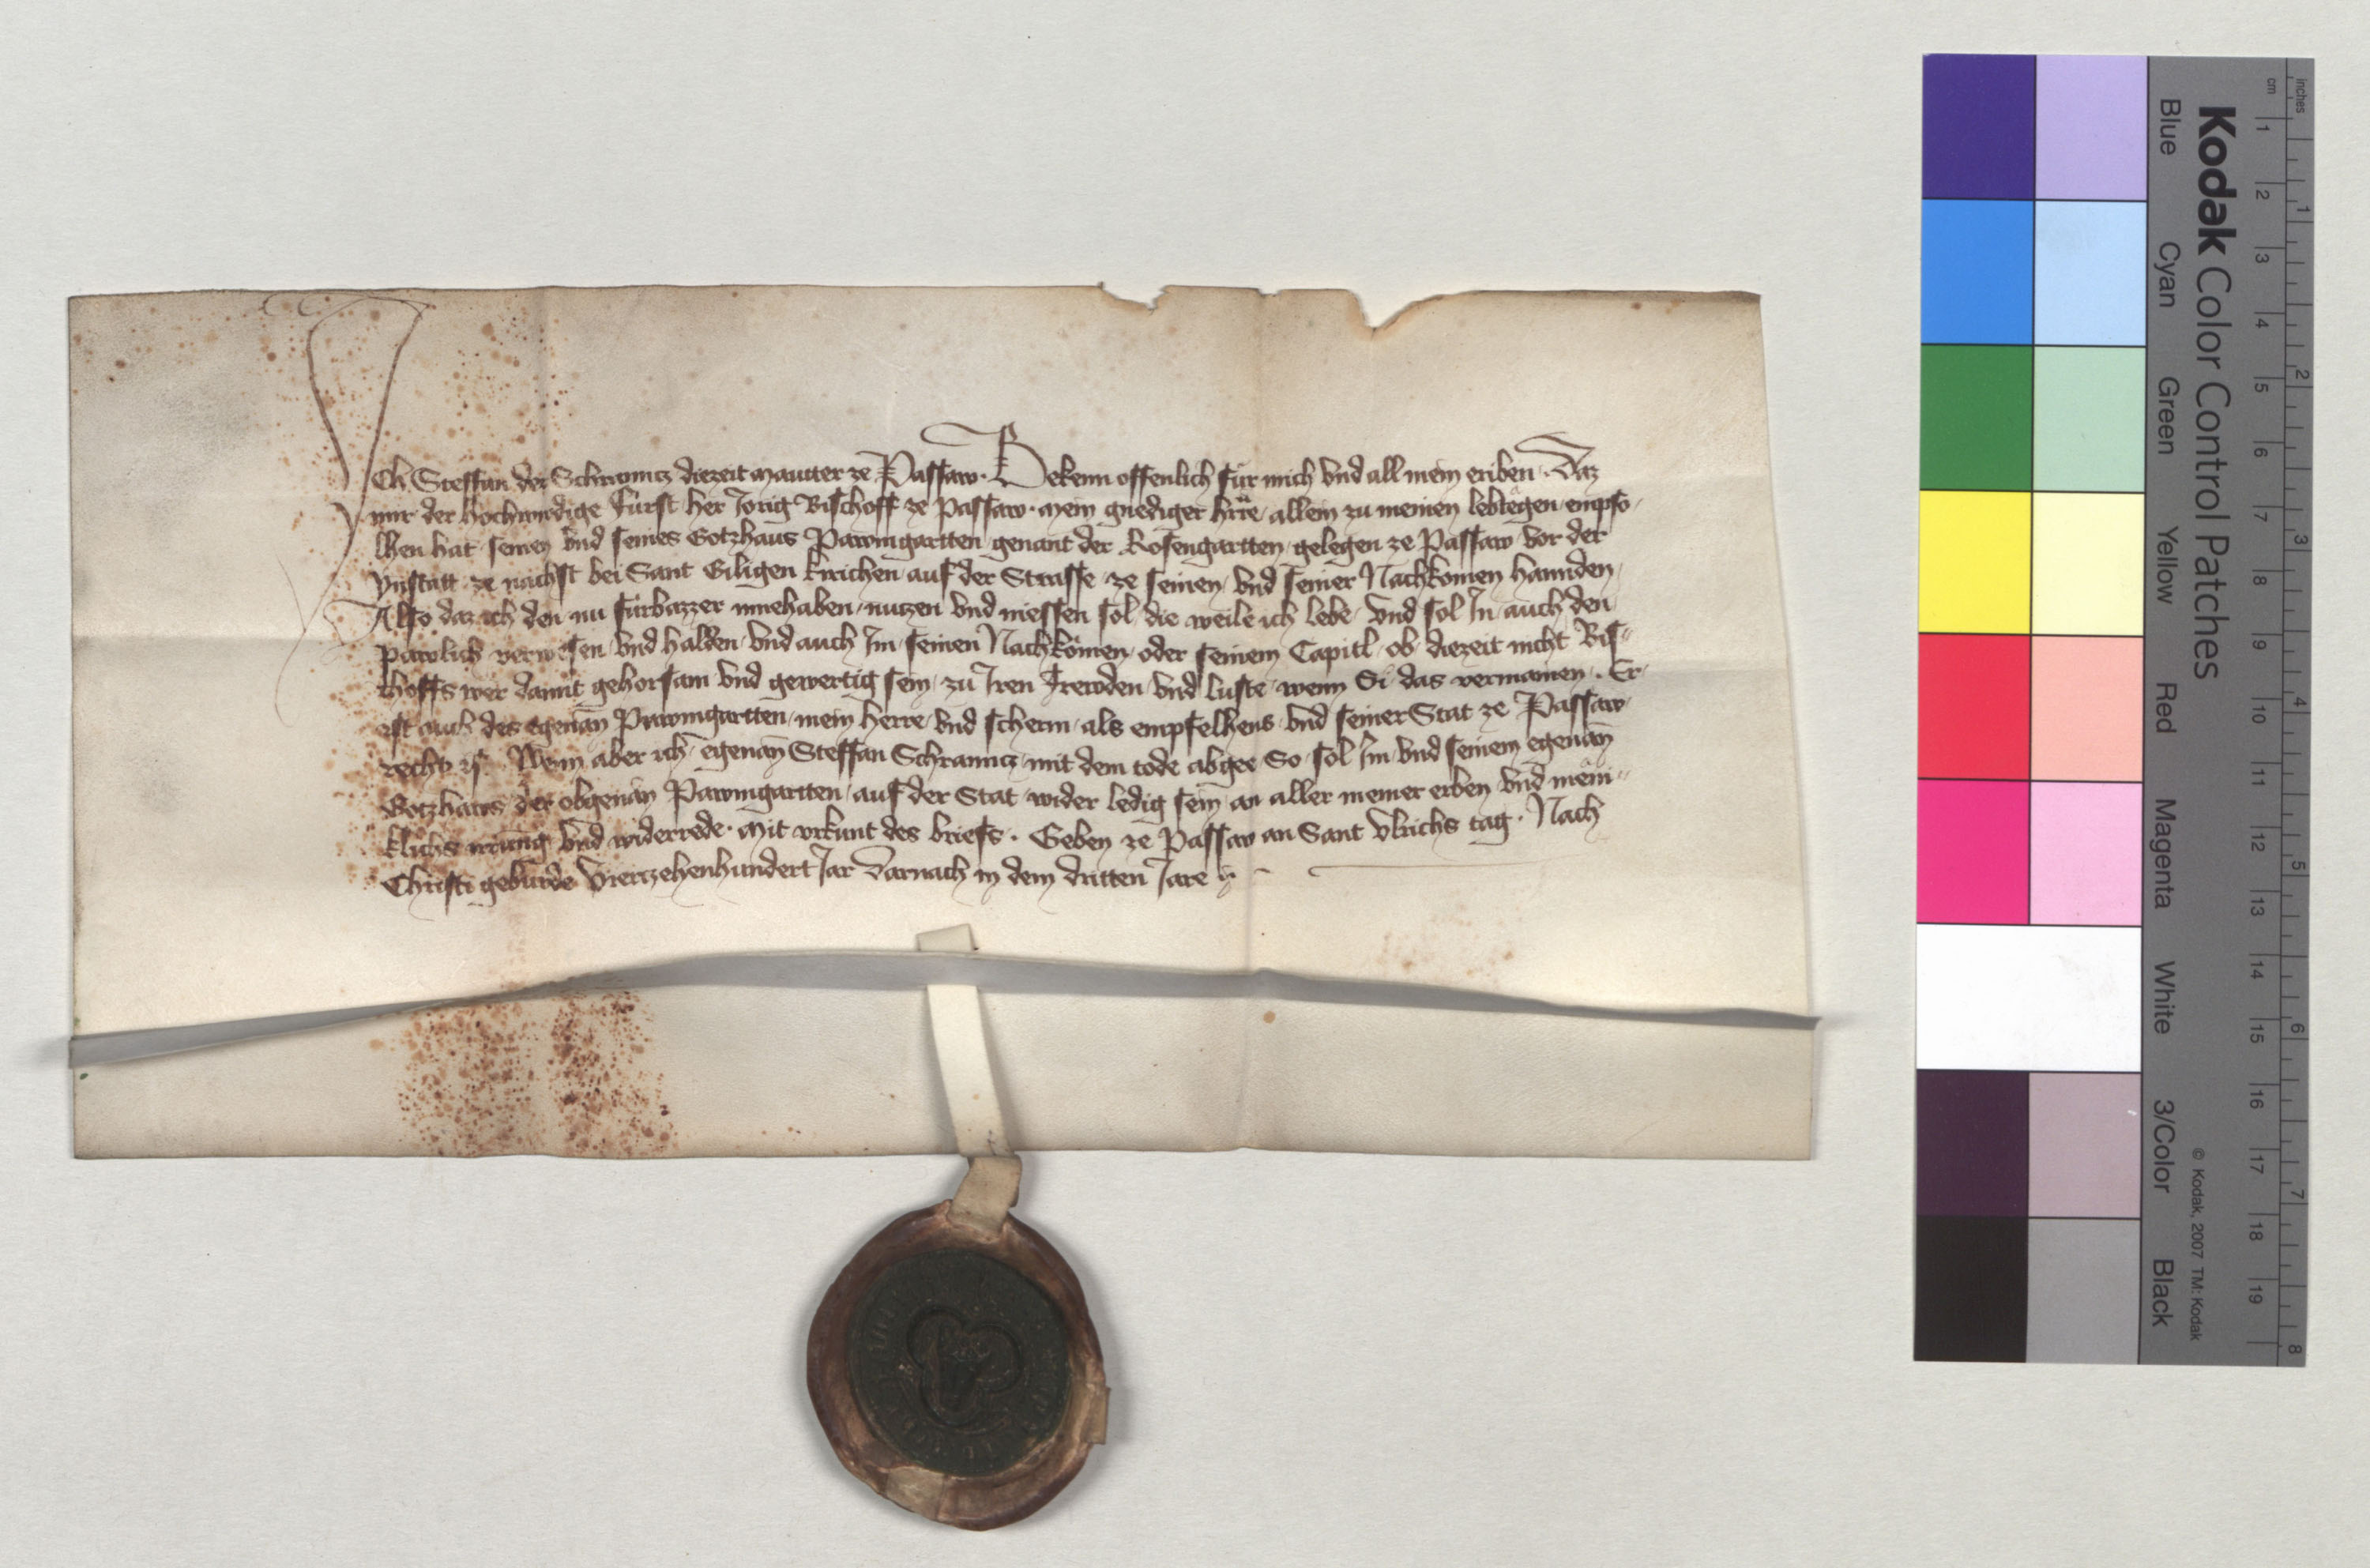 Ich Steffan der Schramicz diezeit mautter ze Passaw. Bekenn offenlich für mich vnd all mein eriben. Daz
mir der hochwirdige fürst her Jorig Bischoff ze Passaw. mein gnediger hrre, allein zu meinen lebtägen, empfo,
lhen hat, seinen vnd seines Gotzhaus Pawmgartten, genant der Rosengartten, gelegen ze Passaw vor der
Ynstatt, ze nächst bei Sant Giligen kirichen, auf der Strasse, ze seinen, vnd seiner Nachkomen hannden,
Also daz ich den nu fürbazzer innehaben, nutzen vnd niessen sol, die weile ich lebe, Vnd sol In auch den
pawlich verwesen vnd halden, vnd auch Im, seinen Nachkömen, oder seinem Capitl, ob diezeit nicht Bis-
choffs wer damit gehorsam vnd gewertig sein, zu Iren frewden, vnd luste, wenn Si das vermainen. Er
ist auch des egenan Pawmgartten, mein herre, vnd scherm, als empfelhens, vnd seiner Stat ze Passaw
recht ist. Wenn aber ich egenan Steffan Schramicz, mit dem tode abgee, So sol Im, vnd seinem egenan
Gotzhaws der obgenan Pawmgartten, auf der Stat, wider ledig sein, an aller meiner erben vnd mëni-
klichs irrung vnd widerrede. Mit vrkunt des briefs. Geben ze Passaw an Sant Vlrichs tag. Nach
Christi geburde Viertzehenhundert Jar Darnach in dem dritten Jare
Kodak Color Control Patches
Blue Cyan Green Yellow Red Magenta White 3/Color Black
inches
cm
1 2 3 4 5 6 7 8 9 10 11 12 13 14 15 16 17 18 19
1 2 3 4 5 6 7 8
© Kodak, 2007 TM: Kodak